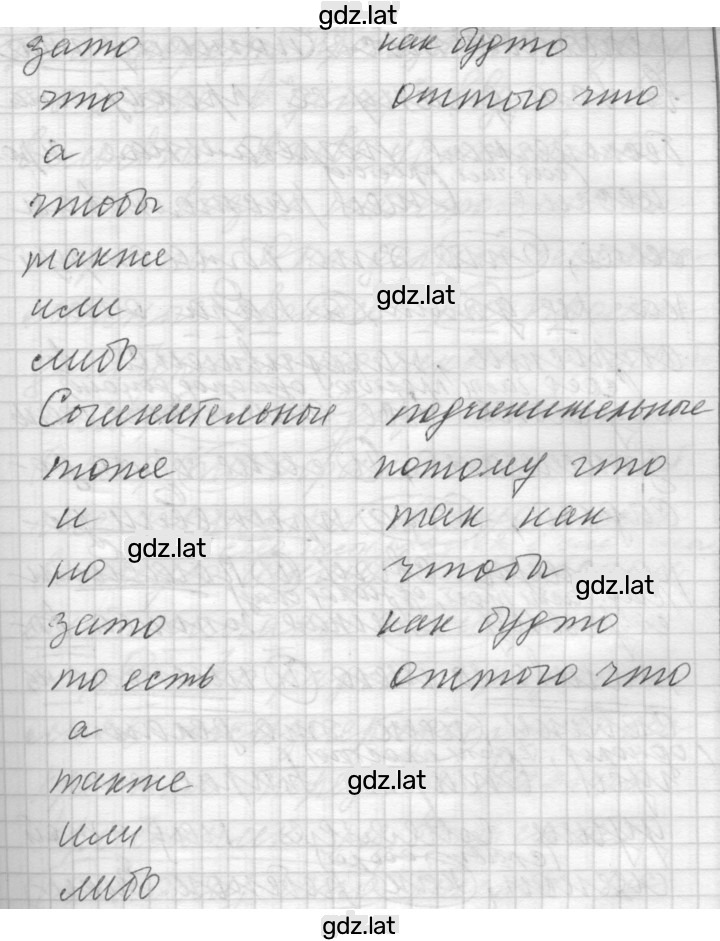 gdz.lat
зато как будто
что оттого что
а
чтобы
также
или gdz.lat
либо
Сочинительные подчинительные
тоже потому что
и так как
gdz.lat
но чтобы
gdz.lat
зато как будто
то есть оттого что
а
также gdz.lat
или
либо
gdz.lat